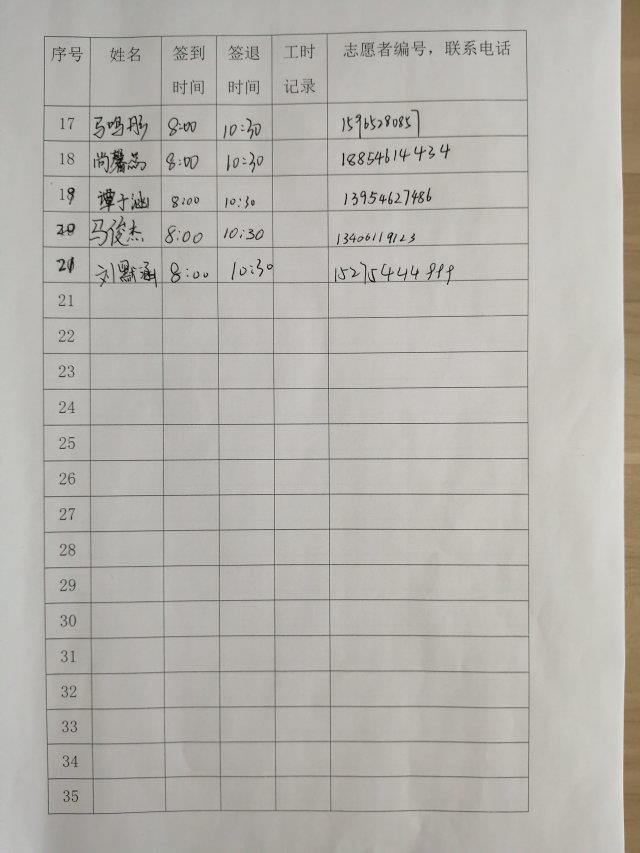 序号 姓名 签到时间 签退时间 工时记录 志愿者编号，联系电话
17 马鸣彤 8:00 10:30 15965280857
18 尚馨蕊 8:00 10:30 18854614434
19 谭子涵 8:00 10:30 13954627486
20 马俊杰 8:00 10:30 13406119123
21 刘默涵 8:00 10:30 15275444999
21
22
23
24
25
26
27
28
29
30
31
32
33
34
35